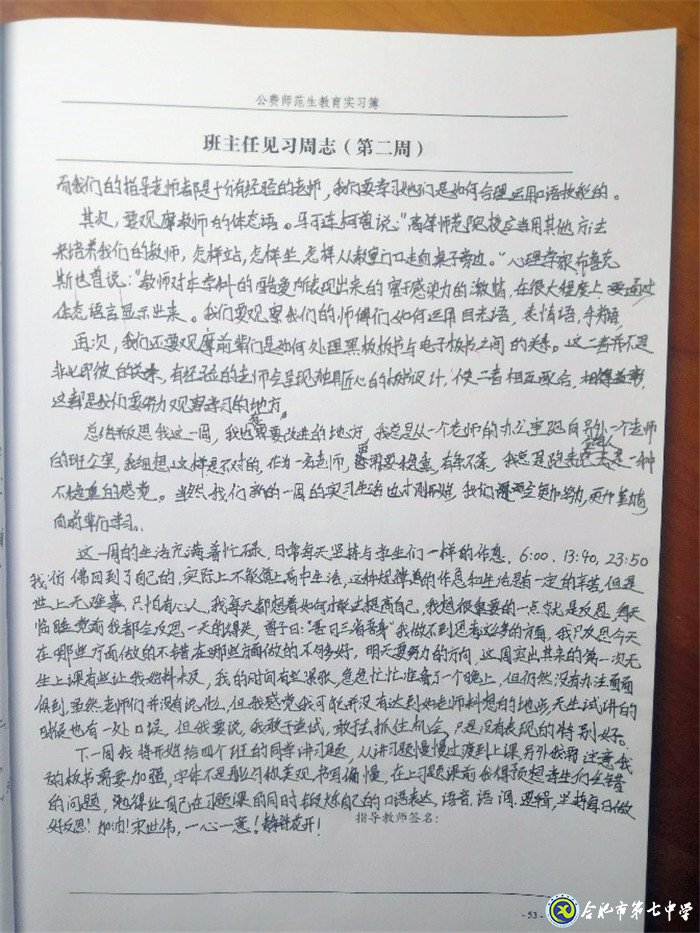 公费师范生教育实习簿
班主任见习周志（第二周）
而我们的指导老师都是十分有经验的老师，我们要学习她们是如何合理运用口语技能的。
其次，要观摩教师的体态语。马可连柯曾说："高等师范院校应当用其他方法
来培养我们的教师，怎样站，怎样坐，怎样从教室门口走向桌子旁边。"心理学家布鲁克
斯也曾说："教师对本学科的酷爱所表现出来的富于感染力的激情，在很大程度上要通过
体态语言显示出来。我们要观察我们的师傅们如何运用目光语，表情语，手势语
再次，我们还要观摩前辈们是如何处理黑板板书与电子板书之间的关系。这二者并不是
非此即彼的关系，有经验的老师会呈现独具匠心的板书设计，使二者相互融合，相得益彰
这都是我们要努力观察学习的地方。
总结反思我这一周，我也有需要改进的地方，我总是从一个老师的办公室跑向另外一个老师
的办公室，我细想这样是不对的，作为一名老师，需要稳重，有条不紊，我总是跑来跑去给人一种
不稳重的感觉。当然，我们新的一周的实习生活也计划开始，我们要更加努力，更加
向前辈们学习。
这一周的生活充满着忙碌，日常每天坚持与学生们一样的作息，6:00，13:40，23:50
我仿佛回到了自己的高中生活，这种规律的作息和生活是有一定的辛苦，但是
世上无难事，只怕有心人，我每天都想着如何才能去提高自己，我想很重要的一点就是反思，每天
临睡觉前我都会反思一天的得失，曾子曰："吾日三省吾身"我做不到思考这么多的方面，我只反思今天
在哪些方面做的不错在哪些方面做的不够好，明天要努力的方向，这周突出其来的第一次无
生上课有些让我始料未及，我的时间有些紧张，急急忙忙准备了一个晚上，但仍然没有办法面面
俱到，虽然老师们并没有说什么，但我感觉我可能并没有达到如老师料想的地步，无生试讲的
时候也有一处口误，但我要说，我敢于尝试，敢于去抓住机会，只是没有表现的特别好。
下一周我将开始给四个班的同学讲习题，从讲习题慢慢过渡到上课另外我需注意我
的板书需要加强，字体不是那么美观，书写偏慢，在上习题课前我得预想学生们会错
的问题，也得让自己在习题课的同时锻炼自己的口语表达，语音，语调，逻辑，坚持每日做
好反思！加油！宋世伟，一心一意！静待花开！
指导教师签名：
- 53 -
合肥市第七中学